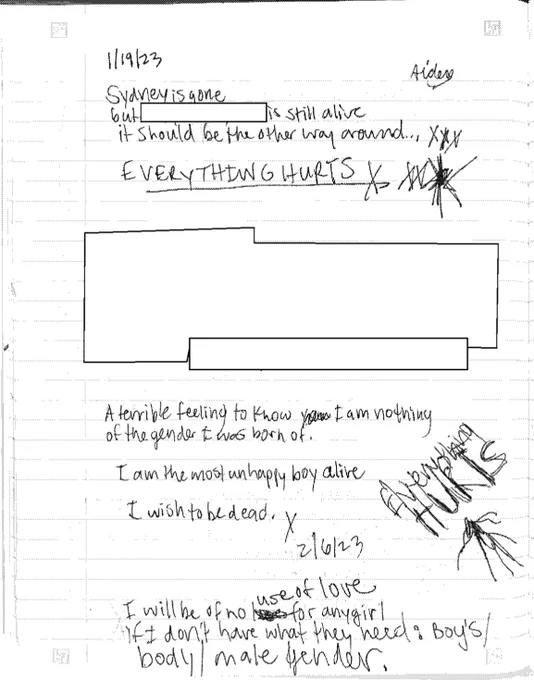 1/19/23
Aiden
Sydney is gone
but is still alive
it should be the other way around... XXX
EVERYTHING HURTS X XXX
A terrible feeling to know I am nothing
of the gender I was born of.
I am the most unhappy boy alive
I wish to be dead. X
Everything
HURTS
2/6/23
I will be of no use of love for any girl
if I don't have what they need: Boy's/
body/ male gender.